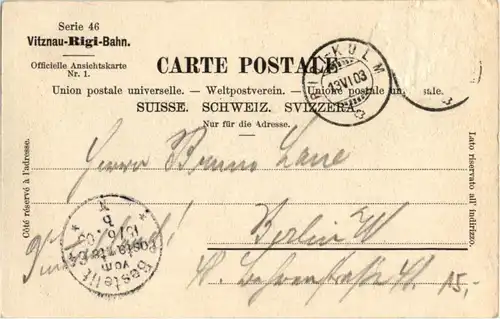 Serie 46
Vitznau-Rigi-Bahn.
Officielle Ansichtskarte
Nr. 1.
CARTE POSTALE
RIGI-KULM
13 VI 03
Union postale universelle. — Weltpostverein. — Unione postale universale.
SUISSE. SCHWEIZ. SVIZZERA.
Nur für die Adresse.
Côté réservé à l'adresse.
Lato riservato all' indirizzo.
Herrn Bruno Lane
Berlin W
Bestellt
vom
Postamte 64
15/6 03